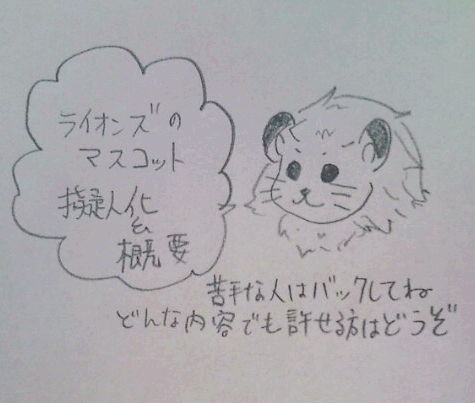 ライオンズの
マスコット
擬人化
&
概要
苦手な人はバックしてね
どんな内容でも許せる方はどうぞ